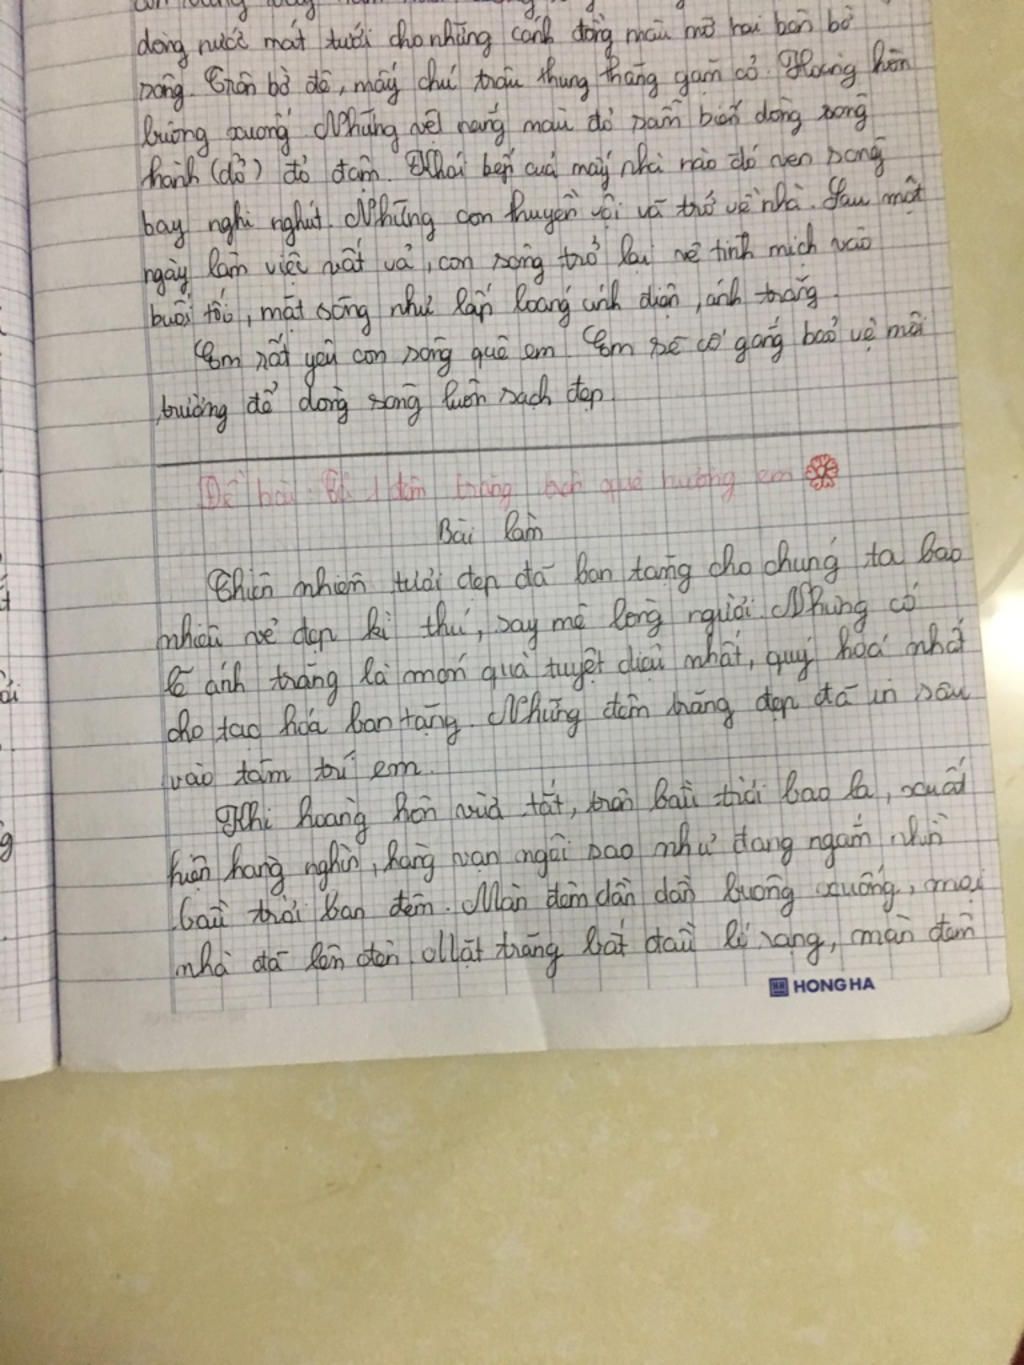 dòng nước mát tưới cho những cánh đồng màu mỡ hai bên bờ
sông. Trên bờ đê, mấy chú trâu thung thăng gặm cỏ. Hoàng hôn
buông xuống. Những vệt nắng màu đỏ sẫm biến dòng sông
thành (đỏ) đỏ đậm. Khói bếp của mấy nhà nào đó ven sông
bay nghi ngút. Những con thuyền vội vã trở về nhà. Sau một
ngày làm việc vất vả, con sông trở lại vẻ tĩnh mịch vào
buổi tối, mặt sông như lấp loáng ánh điện, ánh trăng.
Em rất yêu con sông quê em. Em sẽ cố gắng bảo vệ môi
trường để dòng sông luôn sạch đẹp.
Đề bài: Tả 1 đêm trăng quê hương em
Bài làm
Thiên nhiên tươi đẹp đã ban tặng cho chúng ta bao
nhiêu vẻ đẹp kì thú, say mê lòng người. Nhưng có
lẽ ánh trăng là món quà tuyệt diệu nhất, quý hoá nhất
cho tạo hóa ban tặng. Những đêm trăng đẹp đã in sâu
vào tâm trí em.
Khi hoàng hôn vừa tắt, trên bầu trời bao la, xuất
hiện hàng nghìn, hàng vạn ngôi sao như đang ngắm nhìn
bầu trời ban đêm. Màn đêm dần dần buông xuống, mọi
nhà đã lên đèn. Mặt trăng bắt đầu ló rạng, màn đêm
HONG HA